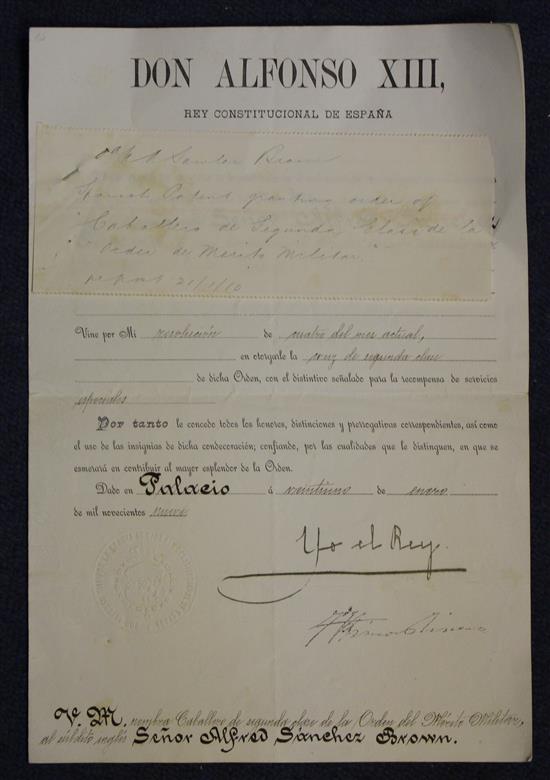 DON ALFONSO XIII,
REY CONSTITUCIONAL DE ESPAÑA
Brown
Patent granting order of
"Caballero de Segunda Clase de la
Orden de Merito Militar."
21/1/10
Vine por Mi resolución de cuatro del mes actual,
en otorgarle la cruz de segunda clase
de dicha Orden, con el distintivo señalado para la recompensa de servicios
especiales
Por tanto le concedo todos los honores, distinciones y prerrogativas correspondientes, así como
el uso de las insignias de dicha condecoración; confiando, por las cualidades que le distinguen, en que se
esmerará en contribuir al mayor esplendor de la Orden.
Dado en Palacio á veintiuno de enero
de mil novecientos nueve
Yo el Rey.
V. M. nombra Caballero de segunda clase de la Orden del Mérito Militar,
al súbdito inglés Señor Alfred Sanchez Brown.